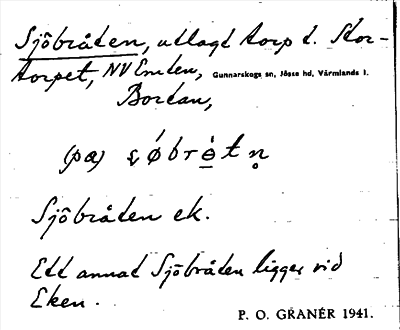 Sjöbråten, utlagt torp t. Stor-
torpet, NV Emten, Gunnarskogs sn, Jösse hd, Värmlands l.
Bortan,
(pa)
Sjöbråten ek.
Ett annat Sjöbråten ligger vid
Eken.
P. O. GRANÉR 1941.